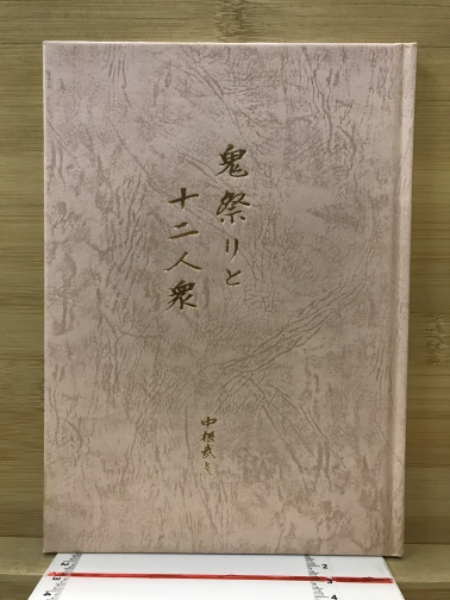 鬼祭りと
十二人衆
中根武